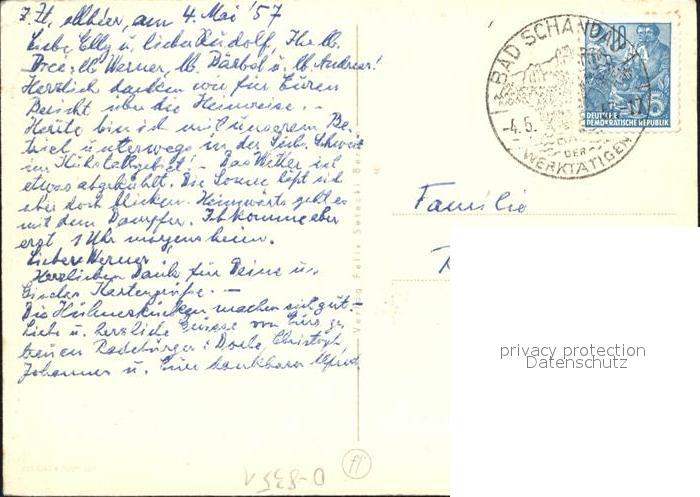 Z. Zt. allhier, am 4. Mai '57
Liebe Elly u. lieber Rudolf, Ihr lb.
Drei: lb. Werner, lb. Bärbel u. lb. Andreas!
Herzlich danken wir für Euren
Bericht über die Heimreise. –
Heute bin ich mit unserem Be-
trieb unterwegs in der Sächs. Schweiz
im Kuhstallgebiet! – Das Wetter ist
etwas abgekühlt. Die Sonne läßt sich
aber doch blicken. Heimwärts geht es
mit dem Dampfer. Ich komme aber
erst 1 Uhr morgens heim.
Lieber Werner,
Herzlichen Dank für Deine u.
Kartengrüße. –
Die Hühnerkücken machen sich gut. –
Liebe u. herzliche Grüsse von Eure
treuen Radeburger: Dorle, Christoph
Johannes u. Euer dankbarer Alfred
Verlag Felix Setecki Ber
BAD SCHANDAU
-4.5. 17
DER
WERKTÄTIGEN
10
15
DEUTSCHE
DEMOKRATISCHE REPUBLIK
Familie
privacy protection
Datenschutz
D-8351